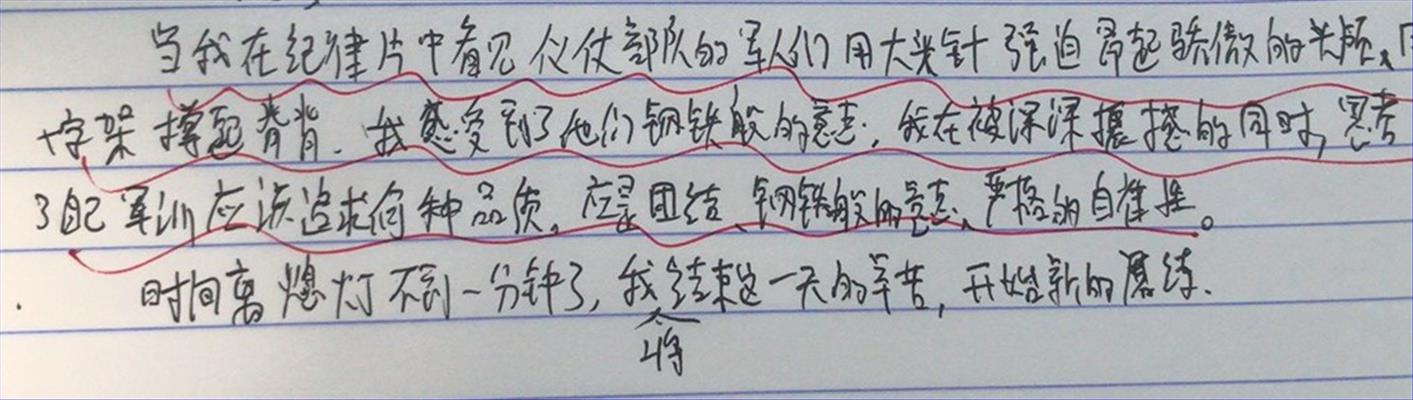 当我在纪律片中看见仪仗部队的军人们用大头针强迫昂起骄傲的头颅、
十字架撑起脊背、我感受到了他们钢铁般的意志,我在被深深震撼的同时,思考
了自己军训应该追求何种品质。应是团结、钢铁般的意志、严格的自律性。
时间离熄灯不到一分钟了,我将结束这一天的辛苦,开始新的磨练.